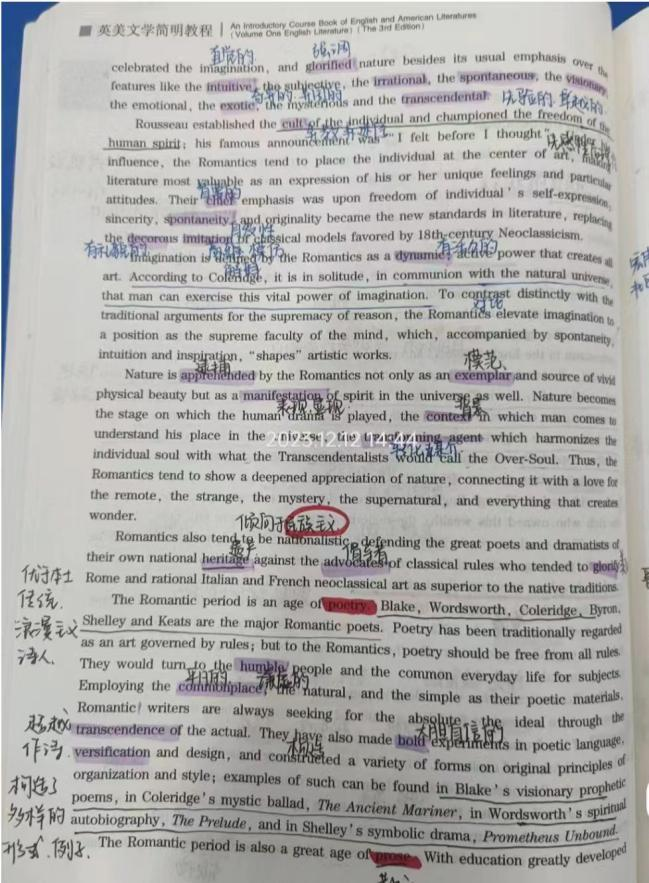 英美文学简明教程 An Introductory Course Book of English and American Literatures
(Volume One English Literature) (The 3rd Edition)
直觉的 强调
celebrated the imagination, and glorified nature besides its usual emphasis over the
features like the intuitive, the subjective, the irrational, the spontaneous, the visionary,
the emotional, the exotic, the mysterious and the transcendental.
Rousseau established the cult of the individual and championed the freedom of the
human spirit; his famous announcement was "I felt before I thought."
influence, the Romantics tend to place the individual at the center of art, making
literature most valuable as an expression of his or her unique feelings and particular
attitudes. Their chief emphasis was upon freedom of individual's self-expression,
sincerity, spontaneity, and originality became the new standards in literature, replacing
the decorous imitation of classical models favored by 18th-century Neoclassicism.
Imagination is defined by the Romantics as a dynamic, active power that creates all
art. According to Coleridge, it is in solitude, in communion with the natural universe,
that man can exercise this vital power of imagination. To contrast distinctly with the
对比
traditional arguments for the supremacy of reason, the Romantics elevate imagination to
a position as the supreme faculty of the mind, which, accompanied by spontaneity,
intuition and inspiration, "shapes" artistic works.
模范
Nature is apprehended by the Romantics not only as an exemplar and source of vivid
physical beauty but as a manifestation of spirit in the universe as well. Nature becomes
表现 显现 背景
the stage on which the human drama is played, the context in which man comes to
2023.12.12 14:44
understand his place in the universe, the transforming agent which harmonizes the
individual soul with what the Transcendentalists would call the Over-Soul. Thus, the
Romantics tend to show a deepened appreciation of nature, connecting it with a love for
the remote, the strange, the mystery, the supernatural, and everything that creates
wonder.
倾向于民族主义
Romantics also tend to be nationalistic, defending the great poets and dramatists of
遗产 倡导者
their own national heritage against the advocates of classical rules who tended to glorify
Rome and rational Italian and French neoclassical art as superior to the native traditions.
优于本土
传统.
The Romantic period is an age of poetry. Blake, Wordsworth, Coleridge, Byron,
浪漫主义
诗人.
Shelley and Keats are the major Romantic poets. Poetry has been traditionally regarded
as an art governed by rules; but to the Romantics, poetry should be free from all rules.
They would turn to the humble people and the common everyday life for subjects.
平凡的 谦逊的
Employing the commonplace, the natural, and the simple as their poetic materials,
Romantic writers are always seeking for the absolute, the ideal through the
超越
大胆自信的
transcendence of the actual. They have also made bold experiments in poetic language,
作诗
构造
versification and design, and constructed a variety of forms on original principles of
构造了
多样的
形式. 例子.
organization and style; examples of such can be found in Blake's visionary prophetic
poems, in Coleridge's mystic ballad, The Ancient Mariner, in Wordsworth's spiritual
autobiography, The Prelude, and in Shelley's symbolic drama, Prometheus Unbound.
The Romantic period is also a great age of prose. With education greatly developed